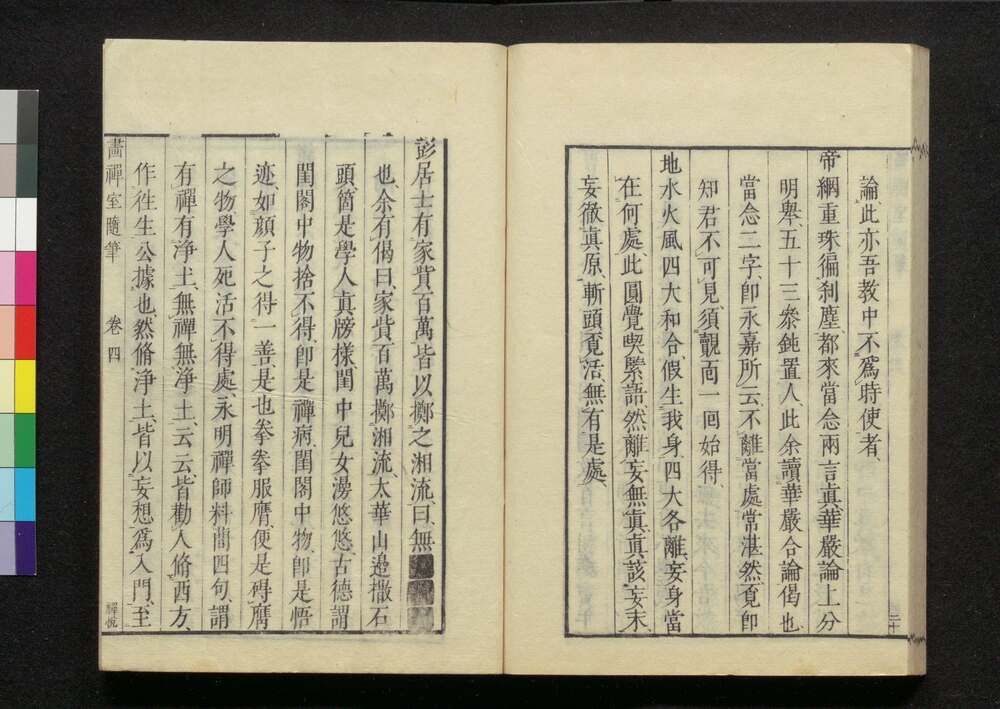 論此亦吾教中不爲時使者、
帝網重珠徧刹塵、都來當念兩言眞、華嚴論上分
明舉、五十三參鈍置人、此余讀華嚴合論偈也、
當念二字、卽永嘉所云、不離當處常湛然、覓卽
知君不可見、須覿面一回始得、
地水火風四大和合、假生我身、四大各離、妄身當
在何處、此圓覺喫緊語、然離妄無眞、眞該妄末、
妄徹眞原、斬頭覓活、無有是處、
二十
彭居士有家貲百萬、皆以擲之湘流、曰、無
也、余有偈曰、家貲百萬擲湘流、太華山邉撒石
頭、箇是學人眞牓樣、閨中兒女漫悠悠、古德謂
閨閣中物捨不得、卽是禪病、閨閣中物、卽是悟
迹、如顔子之得一善是也、拳拳服膺、便是碍膺
之物、學人死活不得處、永明禪師料蕳四句、謂
有禪有淨土、無禪無淨土、云云、皆勸人脩西方、
作徃生公據也、然脩淨土、皆以妄想爲入門、至
畵禪室隨筆 卷四
禪悅